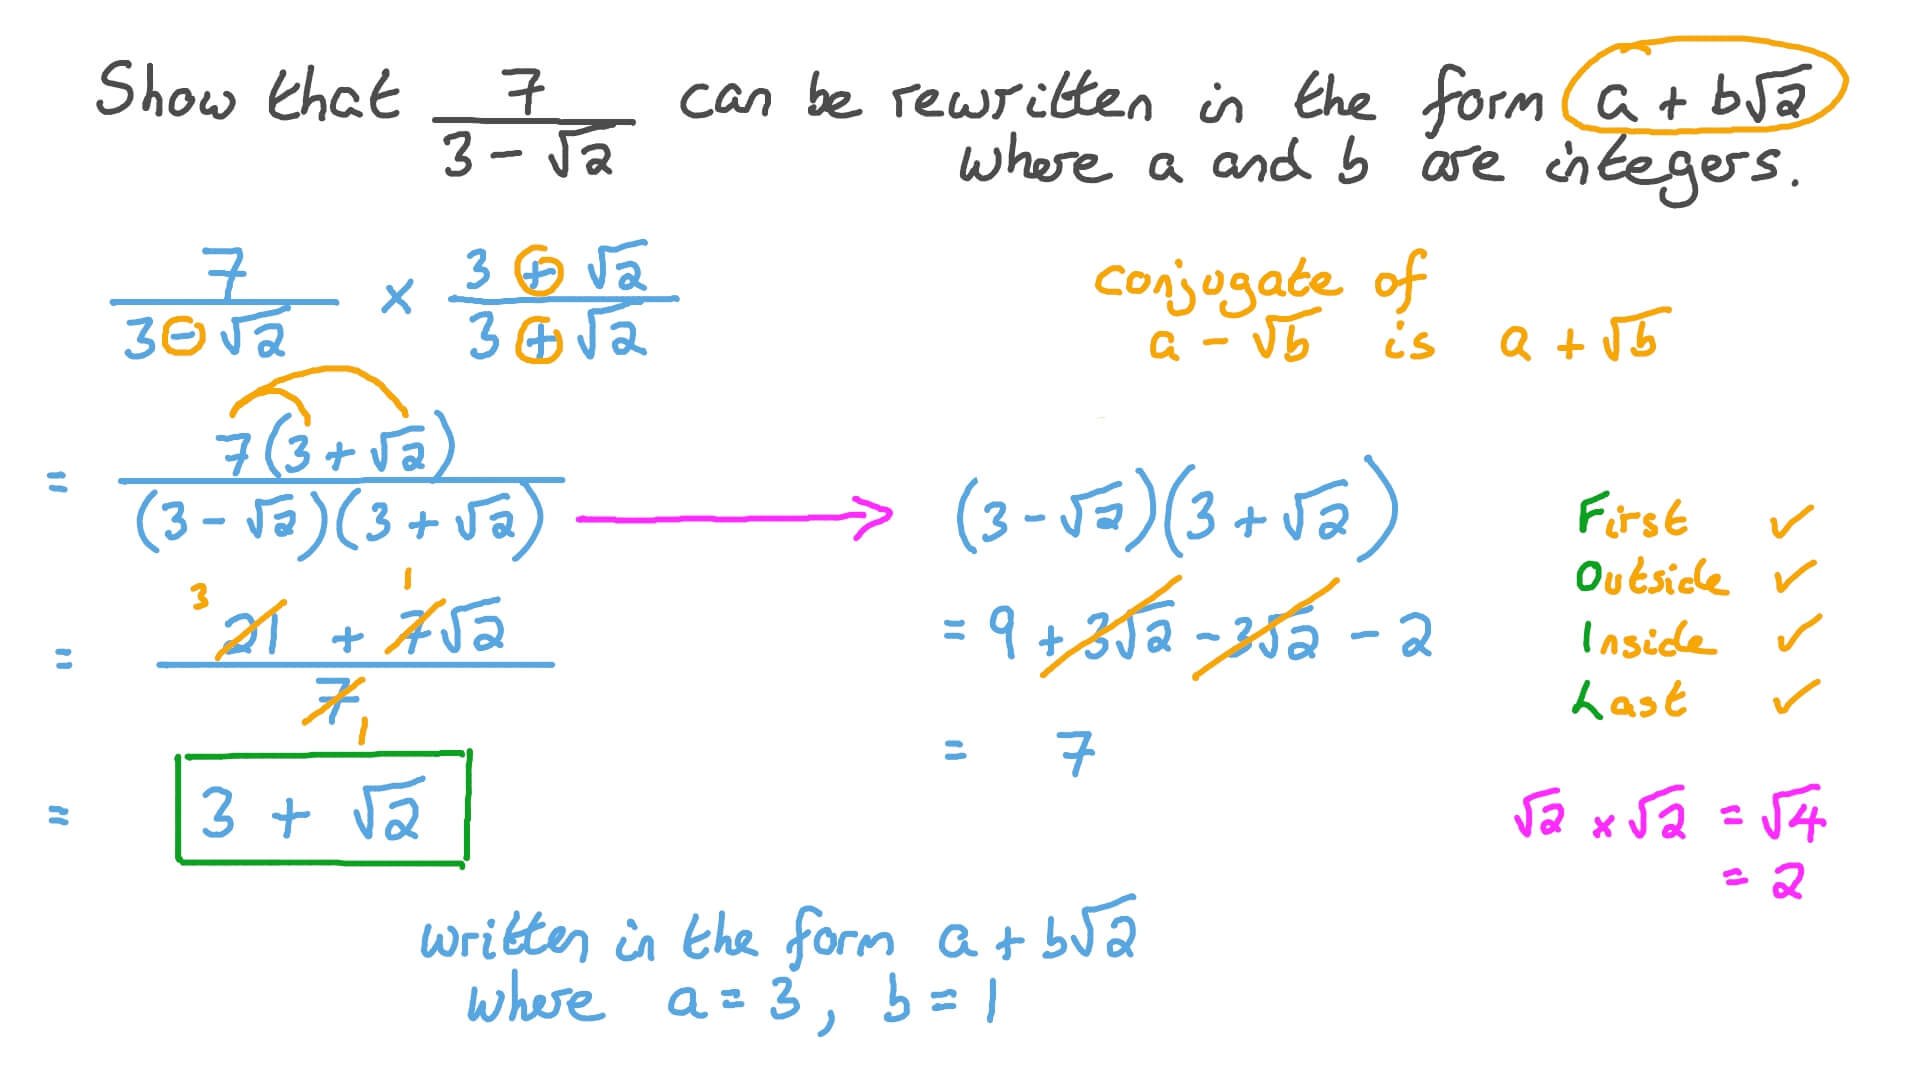 Show that 7/(3 - √2) can be rewritten in the form a + b√2
where a and b are integers.
7/(3 - √2) × (3 + √2)/(3 + √2)
conjugate of
a - √b is a + √b
= 7(3 + √2)/((3 - √2)(3 + √2))
(3 - √2)(3 + √2)
= 9 + 3√2 - 3√2 - 2
= 7
First ✓
Outside ✓
Inside ✓
Last ✓
3 1
= (21 + 7√2)/7
1
= 3 + √2
√2 × √2 = √4
= 2
written in the form a + b√2
where a = 3, b = 1